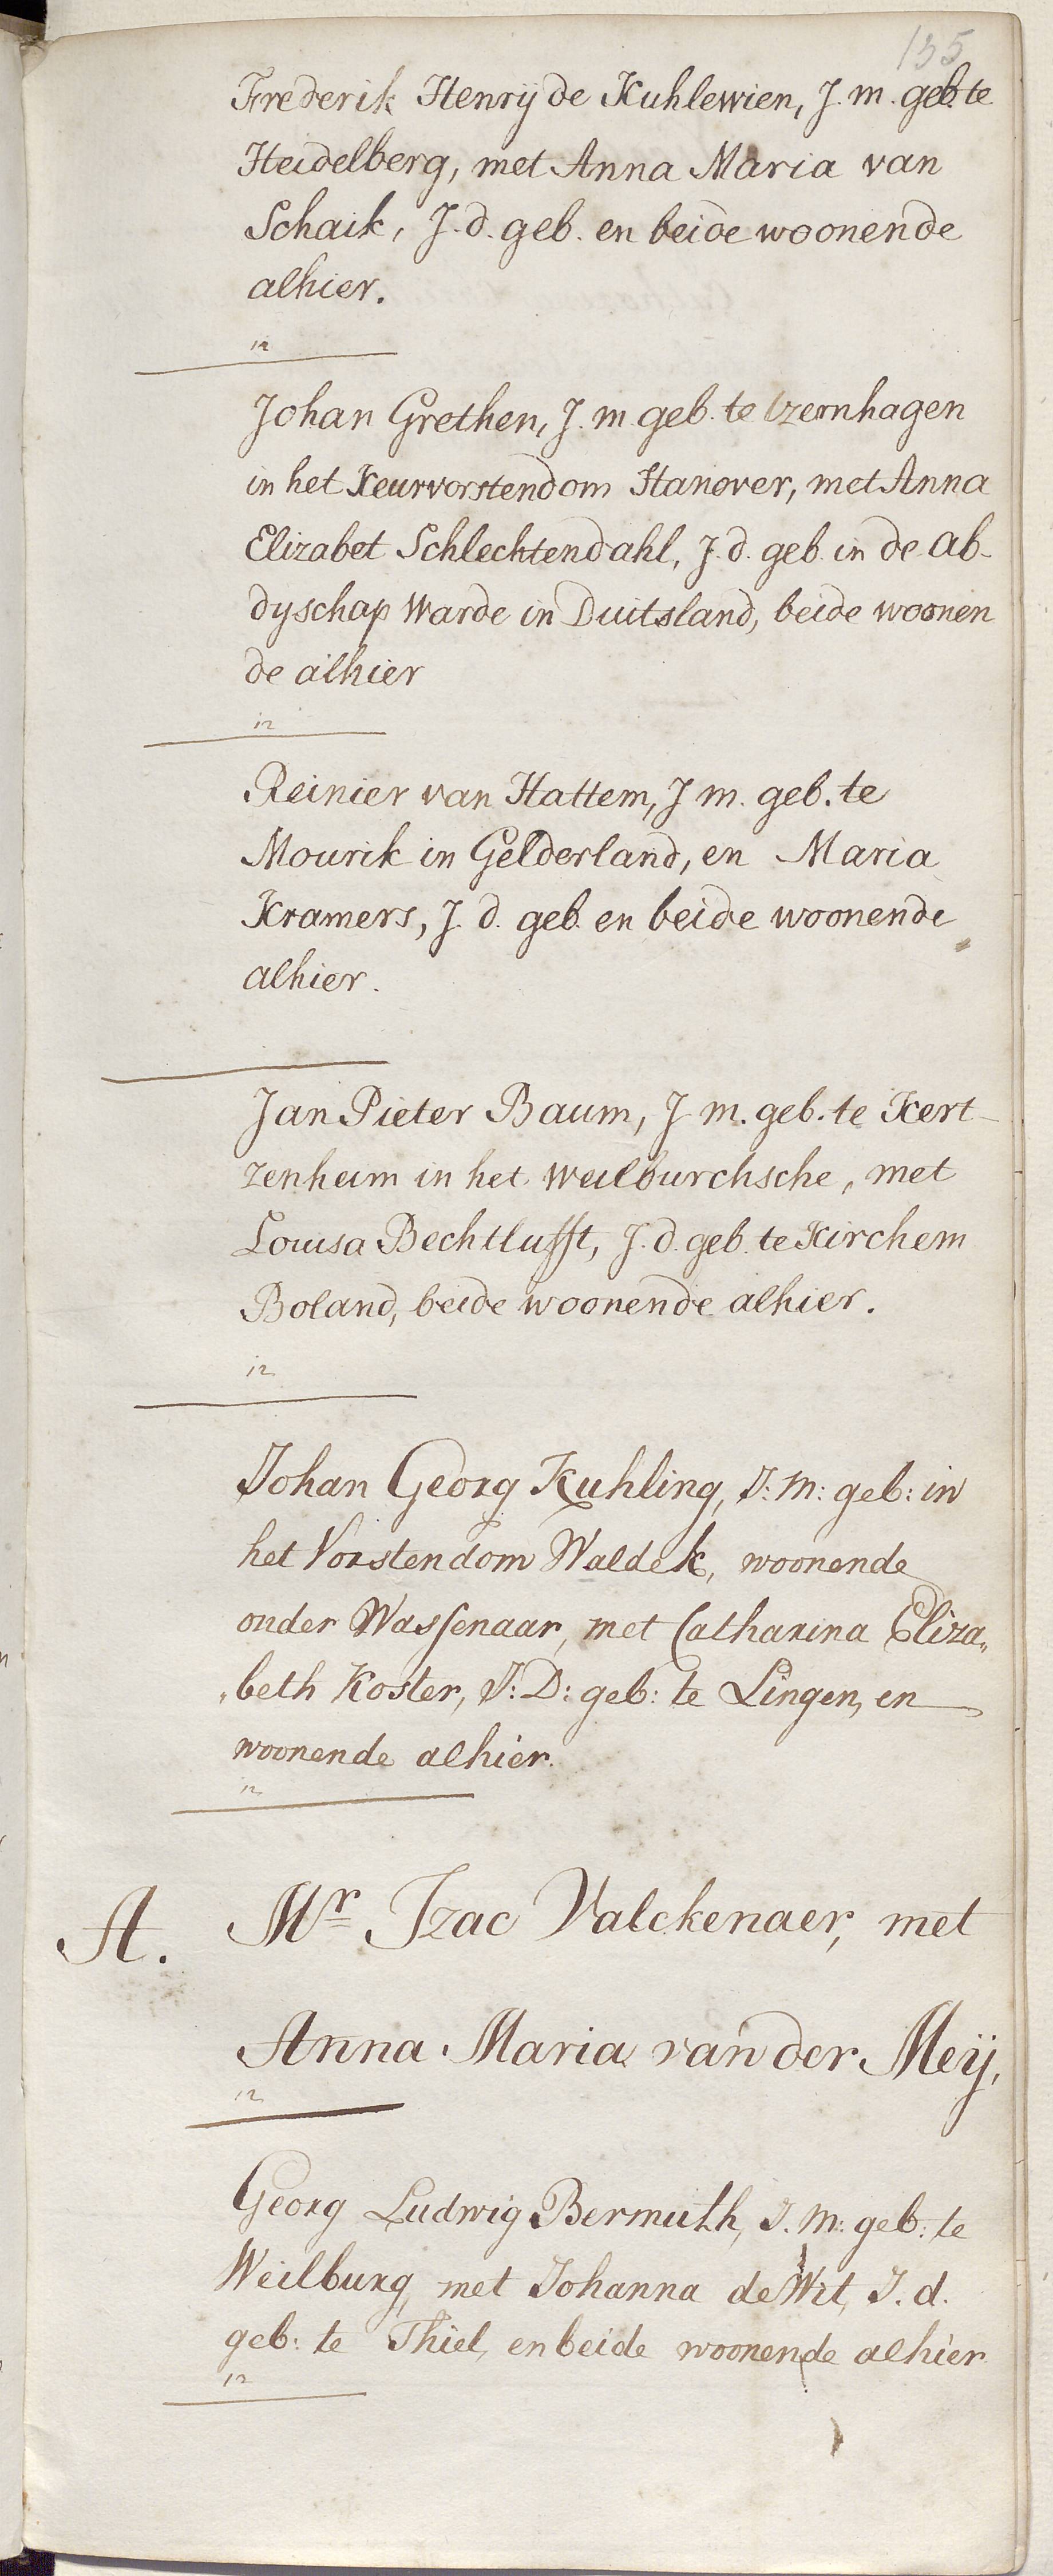 135
Frederik Henrij de Kuhlewien, J. m. geb. te
Heidelberg, met Anna Maria van
Schaik, J. d. geb. en beide woonende
alhier.
12
Johan Grethen, J. m. geb. te Izernhagen
in het Keurvorstendom Hanover, met Anna
Elizabet Schlechtendahl, J. d. geb. in de ab-
dyschap Warde in Duitsland, beide woonen
de alhier
12
Reinier van Hattem, J m. geb. te
Mourik in Gelderland, en Maria
Kramers, J. d. geb. en beide woonende
alhier.
Jan Pieter Baum, J m. geb. te Kert-
zenheim in het Weilburchsche, met
Louisa Bechtlufft, J. d. geb. te Kirchem
Boland, beide woonende alhier.
12
Johan Georg Kuhling, J: M: geb: in
het Vorstendom Waldek, woonende
onder Wassenaar, met Catharina Eliza„
„beth Koster, J: D: geb: te Lingen, en
woonende alhier.
12
A. Mr Izac Valckenaer, met
Anna Maria van der Meij,
12
Georg Ludwig Bermuth, J. M: geb: te
Weilburg, met Johanna de Wit, J. d.
geb: te Thiel, en beide woonende alhier
12